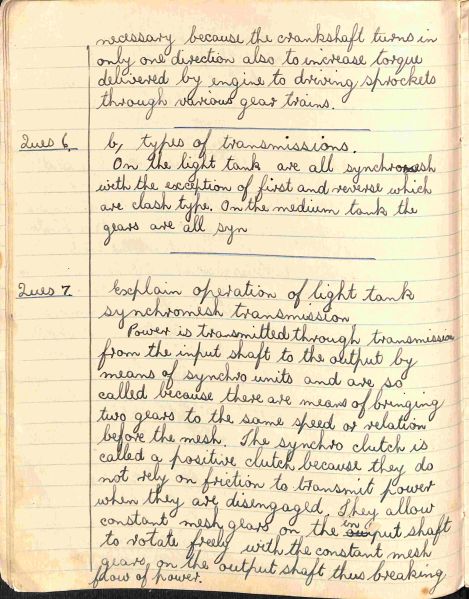 necessary because the crankshaft turns in
only one direction also to increase torque
delivered by engine to driving sprockets
through various gear trains.
Ques 6 b, types of transmissions.
On the light tank are all synchromesh
with the exception of first and reverse which
are clash type. On the medium tank the
gears are all syn
Ques 7. Explain operation of light tank
synchromesh transmission
Power is transmitted through transmission
from the input shaft to the output by
means of synchro units and are so
called because there are means of bringing
two gears to the same speed or relation
before the mesh. The synchro clutch is
called a positive clutch because they do
not rely on friction to transmit power
when they are disengaged. They allow
constant mesh gears on the input shaft
to rotate freely with the constant mesh
gears on the output shaft thus breaking
flow of power.